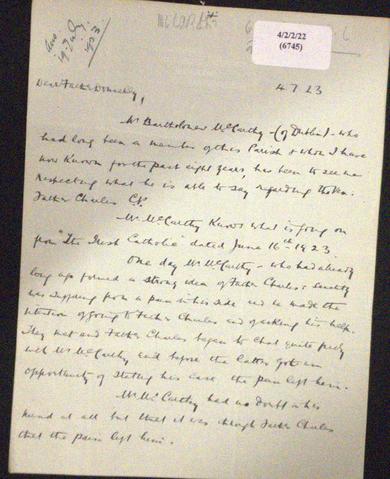 McCarthy
4/2/2/22
(6745)
Ans
19. July
1923
4 7 23
Dear Father Donnelly,
Mr Bartholomew McCarthy - (of Dublin) - who
had long been a member of this Parish & whom I have
now known for the past eight years, has been to see me
respecting what he is able to say regarding the Ven.
Father Charles C.P.
Mr McCarthy knows what is going on
from "The Irish Catholic" dated June 16th 1923.
One day Mr McCarthy - who had already
long up formed a strong idea of Father Charles's sanctity
was suffering from a pain in his side and he made the
intention of going to Father Charles and of asking his help.
They met and Father Charles began to chat quite freely
with Mr McCarthy and before the latter got an
opportunity of stating his case the pain left him.
Mr McCarthy had no doubt in his
mind at all but that it was through Father Charles
that the pain left him.